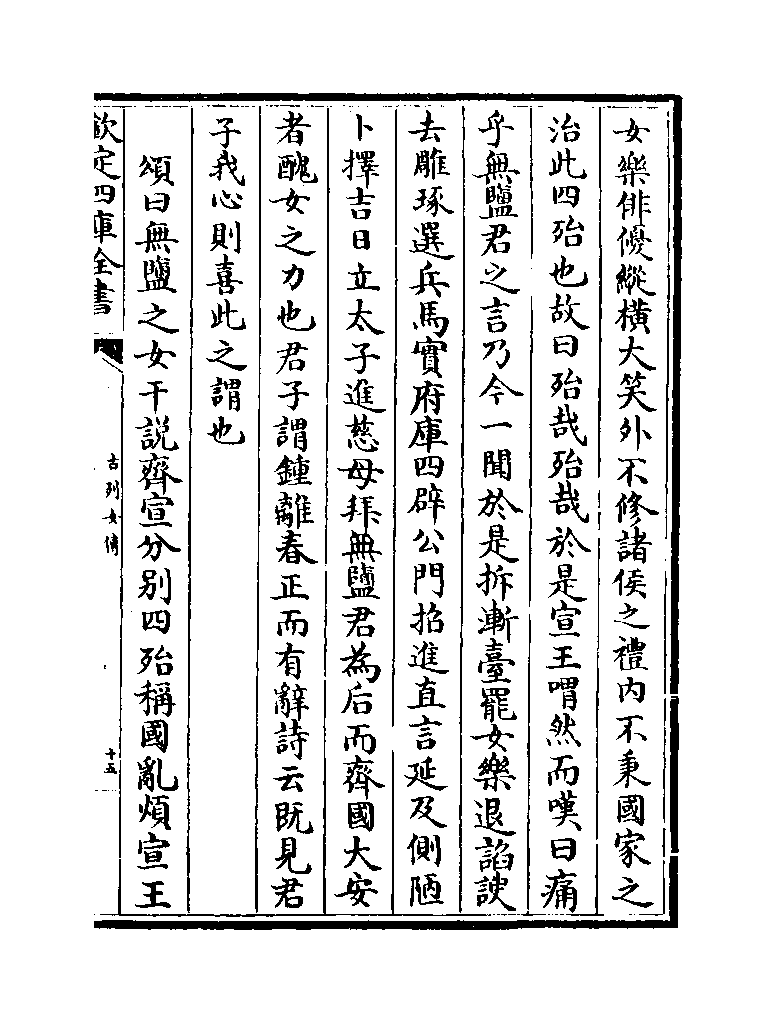 女樂俳優縱橫大笑外不修諸侯之禮内不秉國家之
治此四殆也故曰殆哉殆哉於是宣王喟然而嘆曰痛
乎無鹽君之言乃今一聞於是拆漸臺罷女樂退諂諛
去雕琢選兵馬實府庫四辟公門招進直言延及側陋
卜擇吉日立太子進慈母拜無鹽君為后而齊國大安
者醜女之力也君子謂鍾離春正而有辭詩云既見君
子我心則喜此之謂也
頌曰無鹽之女干説齊宣分别四殆稱國亂煩宣王
欽定四庫全書
古列女傳
十五